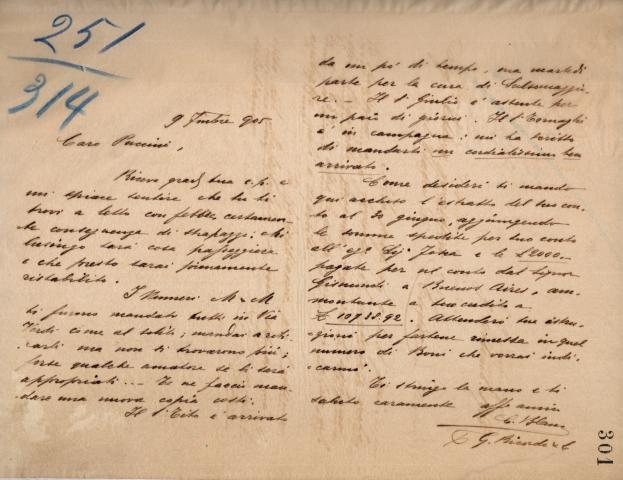 251
314
9 7mbre 905
Caro Puccini,
Ricevo grad. tua c. p. e
mi spiace sentire che tu ti
trovi a letto con febbre, certamen-
te conseguenza di strapazzi; mi
lusingo sarà cosa passeggiera
e che presto sarai pienamente
ristabilito.
I Numeri M & M
ti furono mandati tutti in Via
Verdi come al solito; mandai a cer-
carti ma non si trovarono più;
forse qualche amatore se li sarà
appropriati... Te ne faccio man-
dare una nuova copia costì.
Il Sr Tito è arrivato
da un po' di tempo, ma martedì
parte per la cura di Salsomaggio-
re. - Il Sr Giulio è assente per
un paio di giorni. Il Sr Tornaghi
è in campagna: mi ha scritto
di mandarti un cordialissimo ben
arrivato.
Come desideri ti mando
qui accluso l'estratto del tuo con-
to al 30 giugno, aggiungendo
le somme spedite per tuo conto
all' Sig. Tosca e le £ 2000.-
pagate per ns conto dal Signor
a Buenos Aires, am-
montante a tuo credito a
£ 10738.92. Attenderò tue istru-
zioni per fartene rimessa in quel
numero di Boni che vorrai indi-
carmi.
Ti stringo la mano e ti
saluto caramente aff. amico
C. Blanc
G. Ricordi & C
301